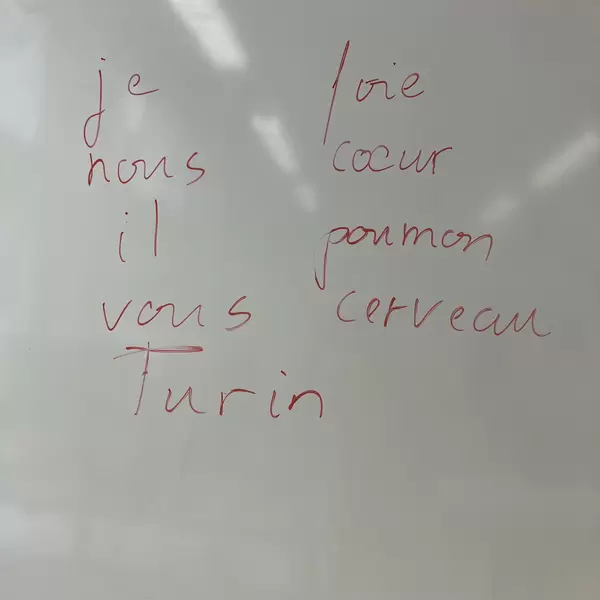 je
nous
il
vous
Turin
foie
coeur
poumon
cerveau